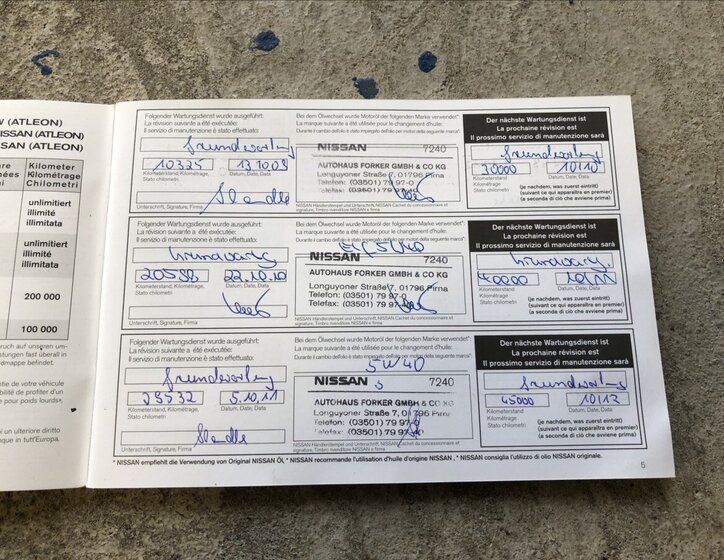 W (ATLEON)
ISSAN (ATLEON)
SAN (ATLEON)
Kilometer
Kilométrage
Chilometri
unlimitiert
illimité
illimitata
unlimitiert
illimité
illimitata
200 000
100 000
Folgender Wartungsdienst wurde ausgeführt:
La révision suivante a été exécutée:
Il servizio di manutenzione è stato effettuato:
Grundwartung
10325 13.10.09
Kilometerstand, Kilométrage, Datum, Date, Data
Stato chilometri
Unterschrift, Signature, Firma
Bei dem Ölwechsel wurde Motoröl der folgenden Marke verwendet*:
La marque suivante a été utilisée pour le changement d'huile:
Durante il cambio dell'olio è stato impiegato dell'olio per motori della seguente marca*:
NISSAN 7240
AUTOHAUS FORKER GMBH & CO KG
Longuyoner Straße 7, 01796 Pirna
Telefon: (03501) 79 97-0
Telefax: (03501) 79 9
NISSAN Händlerstempel und Unterschrift, NISSAN Cachet du concessionnaire et
signature, Timbro rivenditore NISSAN e firma
Der nächste Wartungsdienst ist
La prochaine révision est
Il prossimo servizio di manutenzione sarà
Grundwartung
20000 10/10
Kilometerstand Datum, Date, Data
Kilométrage
Stato chilometri
(je nachdem, was zuerst eintritt)
(suivant ce qui apparaîtra en premier)
(a seconda di ciò che avviene prima)
Folgender Wartungsdienst wurde ausgeführt:
La révision suivante a été exécutée:
Il servizio di manutenzione è stato effettuato:
Grundwartg
20588 22.10.10
Kilometerstand, Kilométrage, Datum, Date, Data
Stato chilometri
Unterschrift, Signature, Firma
Bei dem Ölwechsel wurde Motoröl der folgenden Marke verwendet*:
La marque suivante a été utilisée pour le changement d'huile:
5W40
NISSAN 7240
AUTOHAUS FORKER GMBH & CO KG
Longuyoner Straße 7, 01796 Pirna
Telefon: (03501) 79 97-0
Telefax: (03501) 79 97
NISSAN Händlerstempel und Unterschrift, NISSAN Cachet du concessionnaire et
signature, Timbro rivenditore NISSAN e firma
Der nächste Wartungsdienst ist
La prochaine révision est
Il prossimo servizio di manutenzione sarà
Grundwartg.
40000 10/11
Kilometerstand Datum, Date, Data
Kilométrage
Stato chilometri
(je nachdem, was zuerst eintritt)
(suivant ce qui apparaîtra en premier)
(a seconda di ciò che avviene prima)
Folgender Wartungsdienst wurde ausgeführt:
La révision suivante a été exécutée:
Il servizio di manutenzione è stato effettuato:
Grundwartung
5.10.11
Kilometerstand, Kilométrage, Datum, Date, Data
Stato chilometri
Unterschrift, Signature, Firma
Bei dem Ölwechsel wurde Motoröl der folgenden Marke verwendet*:
La marque suivante a été utilisée pour le changement d'huile:
Durante il cambio dell'olio è stato impiegato dell'olio per motori della seguente marca*:
5W40
NISSAN 7240
AUTOHAUS FORKER GMBH & CO KG
Longuyoner Straße 7, 01796 Pirna
Telefon: (03501) 79 97-0
Telefax: (03501) 79 97
NISSAN Händlerstempel und Unterschrift, NISSAN Cachet du concessionnaire et
signature, Timbro rivenditore NISSAN e firma
Der nächste Wartungsdienst ist
La prochaine révision est
Il prossimo servizio di manutenzione sarà
Grundwartung
45000 10/12
Kilometerstand Datum, Date, Data
Kilométrage
Stato chilometri
(je nachdem, was zuerst eintritt)
(suivant ce qui apparaîtra en premier)
(a seconda di ciò che avviene prima)
* NISSAN empfiehlt die Verwendung von Original NISSAN Öl, * NISSAN recommande l'utilisation d'huile d'origine NISSAN , * NISSAN consiglia l'utilizzo di olio NISSAN originale.
5